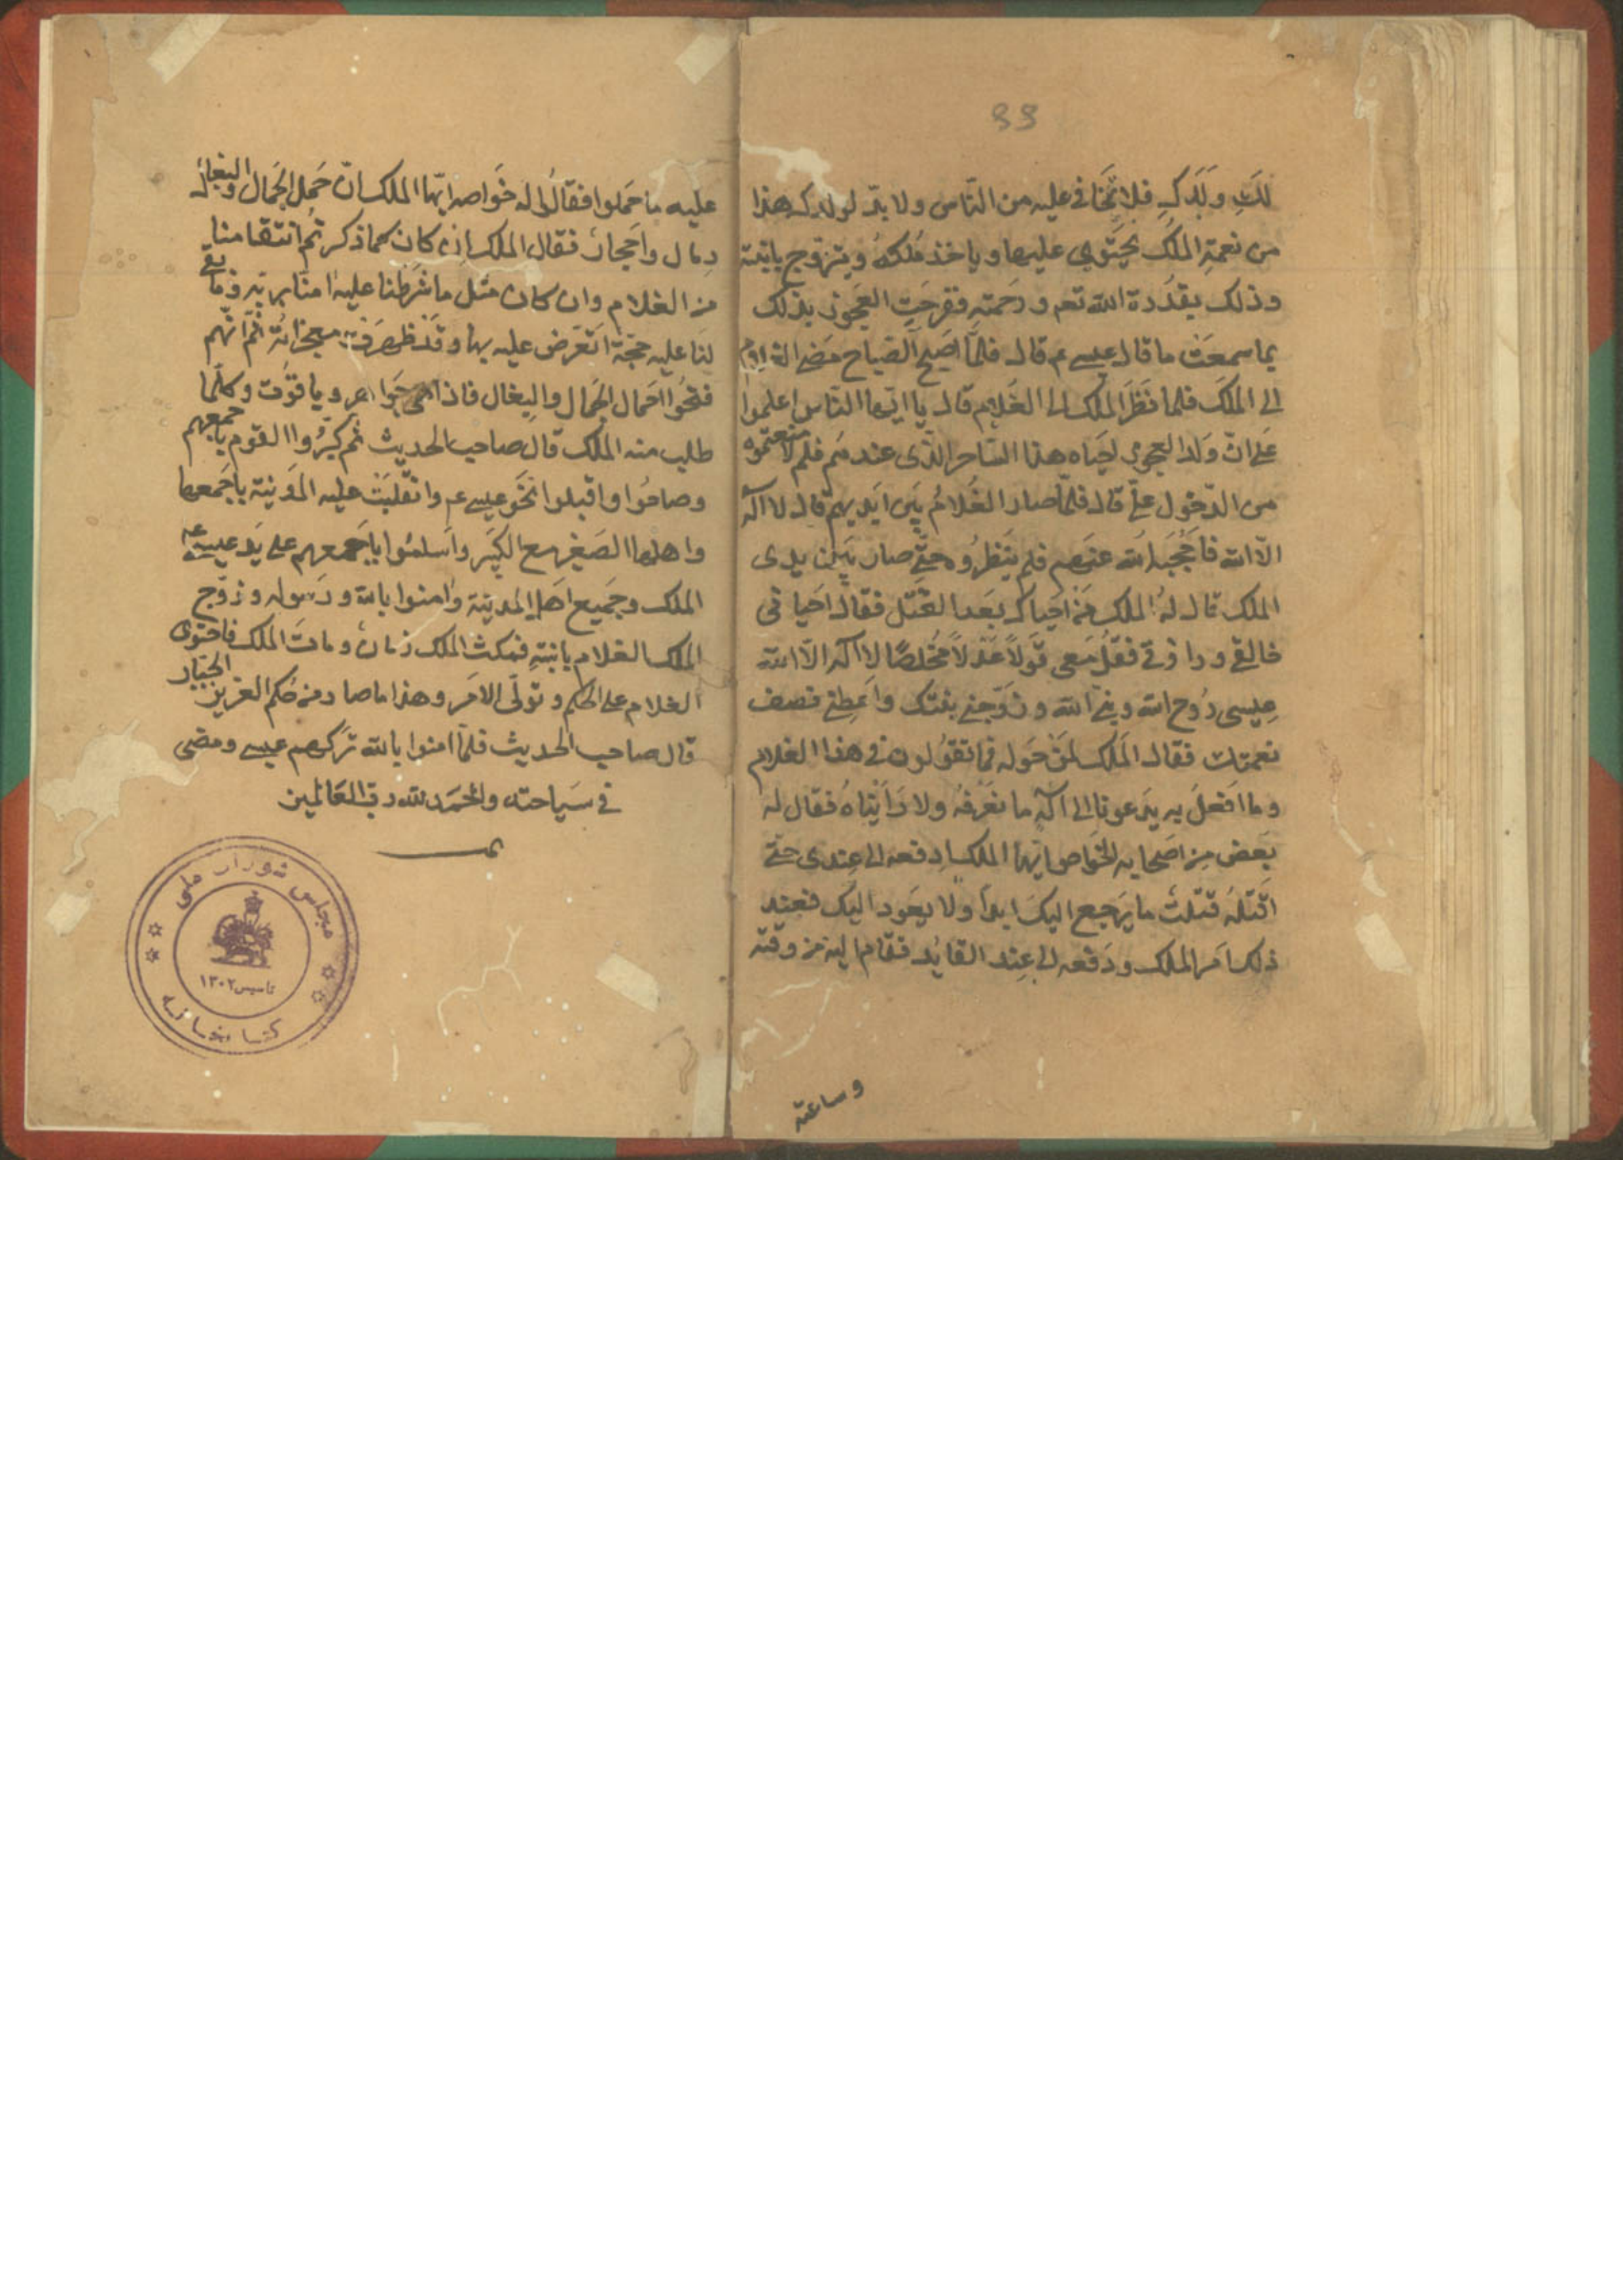 99
لكِ وَلَدكِ فلا تخافي عليه من الناس ولا بدّ لولدك هذا
من نعمة الملك يحتوي عليها وياخذ ملكه ويتزوج بابنته
وذلك بقدرة الله تعم ورحمته ففرحت العجوز بذلك
بما سمعت ما قال عيسى عم قال فلمّا اصبح الصباح مضى الغلام
الى الملك فلما نظر الملك الى الغلام قال يا ايها الناس اعلموا
على ان ولد العجوز احياه هذا الساحر الذى عندهم فلم لا منعتموه
من الدخول علىّ قال فلمّا صار الغلام بين ايديهم قال لا اله
الّا الله فاحجبه الله عنهم فلم ينظروه حتّى صار بين يدى
الملك قال له الملك من احياك بعد القتل فقال احيانى
خالقى ورازقى فقل معى قولاً عدلاً مخلصًا لا اله الّا الله
عيسى روح الله ونبىّ الله وزوّجنى بنتك واعطنى نصف
نعمتك فقال الملك لمن حوله فما تقولون فى هذا الغلام
وما افعل به يدعونا الى اله ما نعرفه ولا رايناه فقال له
بعض من اصحابه الخواص ايها الملك ادفعه الى عندى حتى
اقتله قتلت ما يرجع اليك ابدا ولا يعود اليك فعند
ذلك امر الملك ودفعه الى عند القايد فقام اليه من وقته
وساعته
عليه ما حملوا فقال له خواصه ايّها الملك انّ حمل الجمال والبغال
رمال واحجار فقال الملك ان كان كما ذكرتم انتقامنا
من الغلام وان كان مثل ما شرطنا عليه امنّا بربّه وما بقى
لنا عليه حجّة اتعرض عليه بها وقد ظهرت معجزاته ثمّ انّهم
فتحوا احمال الجمال والبغال فاذا هى جواهر وياقوت وكلّما
طلب منه الملك قال صاحب الحديث ثم كبّروا القوم باجمعهم
وصاحوا واقبلوا نحو عيسى عم وانقلبت عليه المدينة باجمعها
واهلها الصغير مع الكبير واسلموا باجمعهم على يد عيسى عم
الملك وجميع اهل المدينة وامنوا بالله ورسوله وزوّج
الملك الغلام بابنته فمكث الملك زمان ومات الملك فاحتوى
الغلام على الحكم وتولّى الامر وهذا ما صار من حكم العزيز الجبّار
قال صاحب الحديث فلمّا امنوا بالله تركهم عيسى ومضى
فى سياحته والحمد لله ربّ العالمين
تمـــ
مجلس شوراى ملى
تاسيس ١٣٠٢
كتابخانه